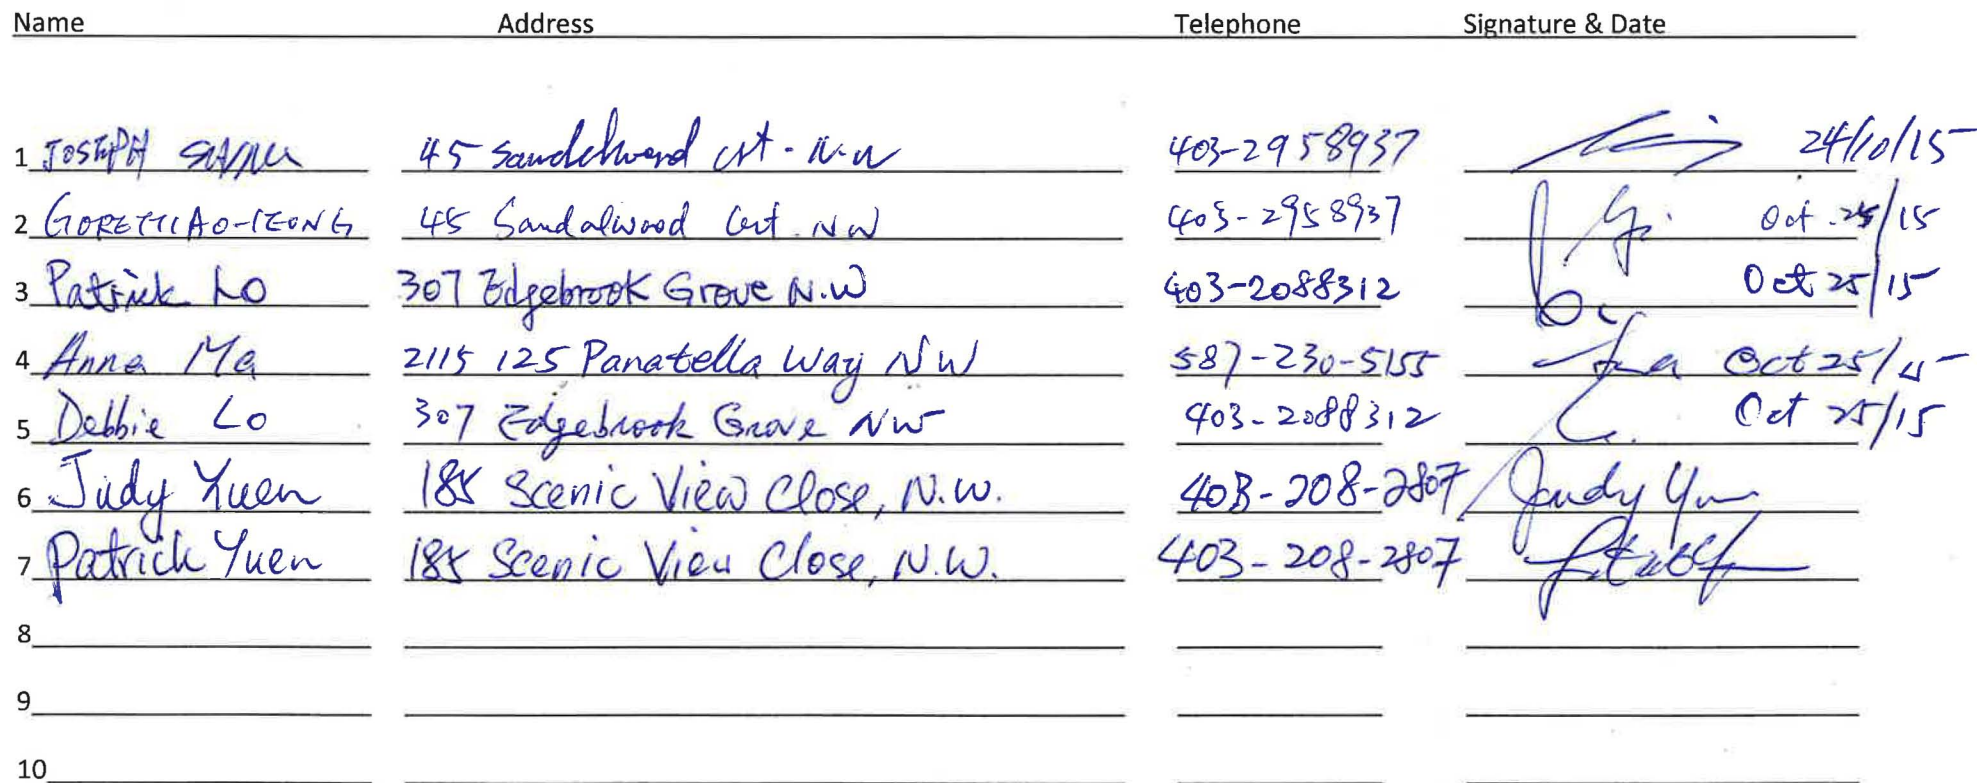 Name Address Telephone Signature & Date
1 JOSEPH 45 Sandelwood crt - N.W 403-2958937 24/10/15
2 GORETTI AO-IEONG 45 Sandalwood Crt. NW 403-2958937 Oct 25/15
3 Patrick Lo 307 Edgebrook Grove N.W 403-2088312 Oct 25/15
4 Anna Ma 2115 125 Panatella Way NW 587-230-5155 Oct 25/15
5 Debbie Lo 307 Edgebrook Grove NW 403-2088312 Oct 25/15
6 Judy Yuen 185 Scenic View Close, N.W. 403-208-2807 Judy Yuen
7 Patrick Yuen 185 Scenic View Close, N.W. 403-208-2807
8
9
10